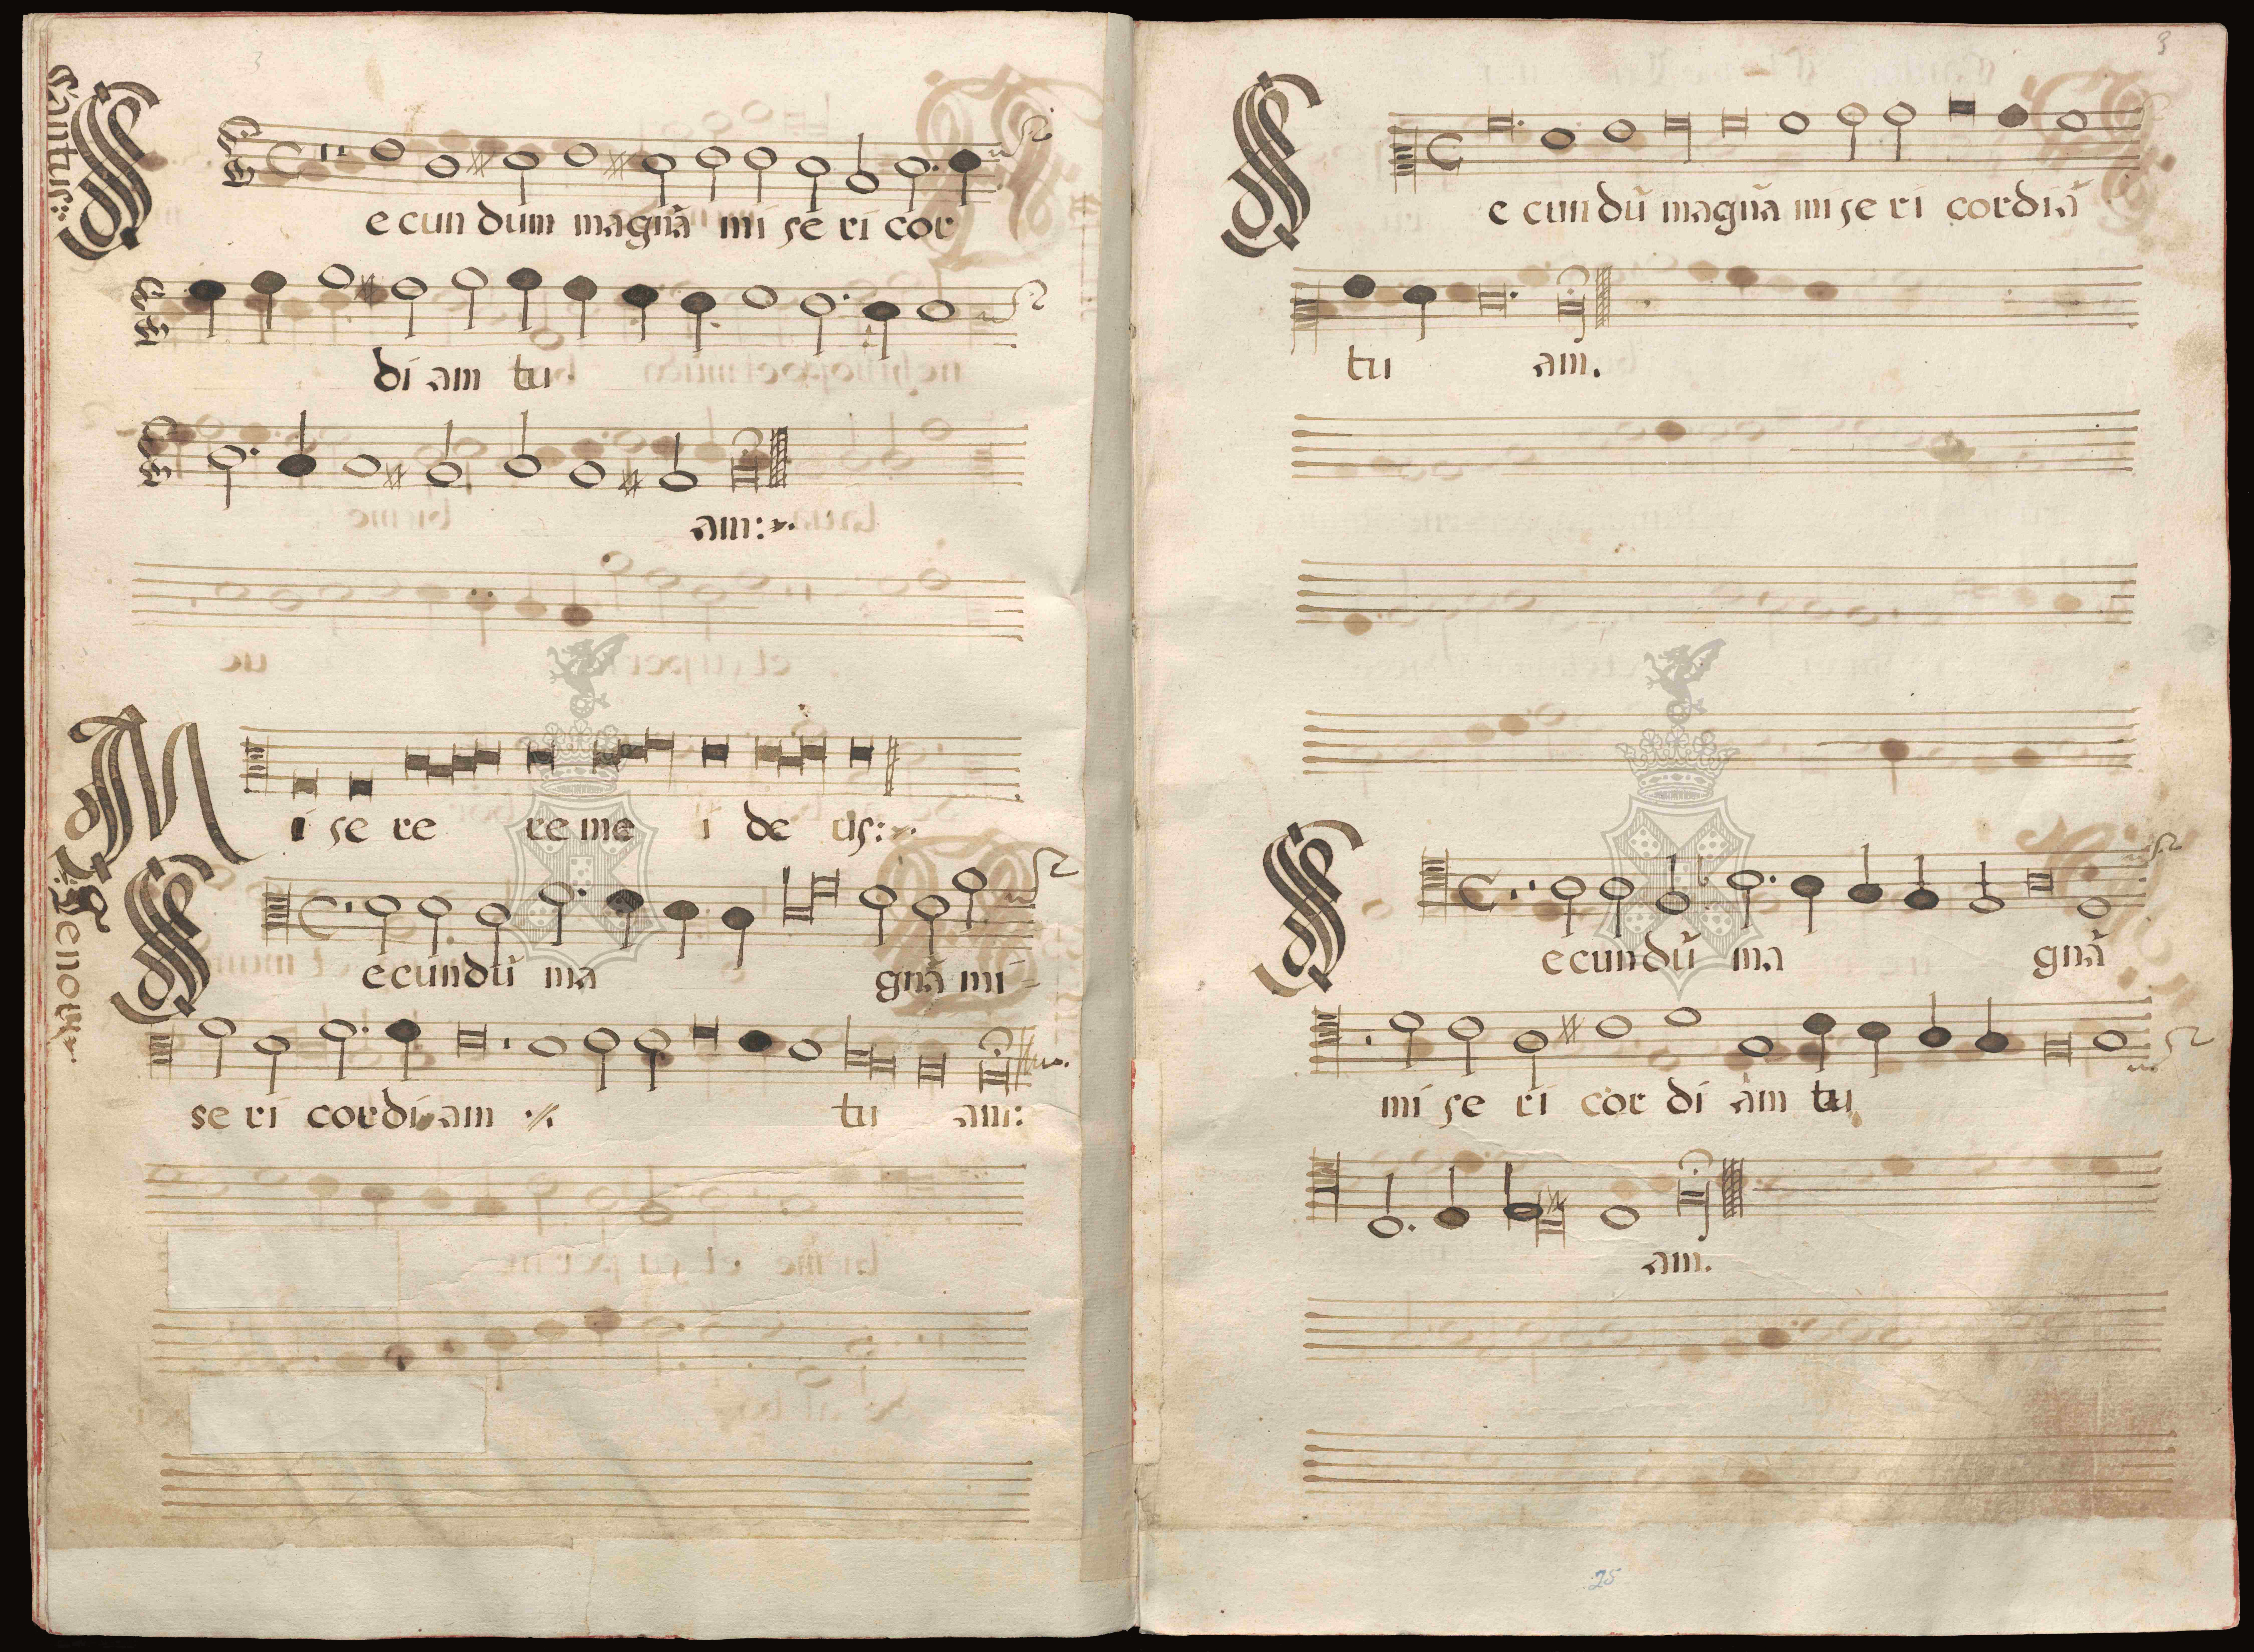 3
Cantus:
Secundum magnã mi se ri cor
di am tu
am:
Mi se re re me i de us:
Tenor
Secundũ ma gnã mi
se ri cordi am ·//.
tu am:
3
Secundũ magnã mi se ri cordiã
tu am.
Secundũ ma gnã
mi se ri cor di am tu
am.
25